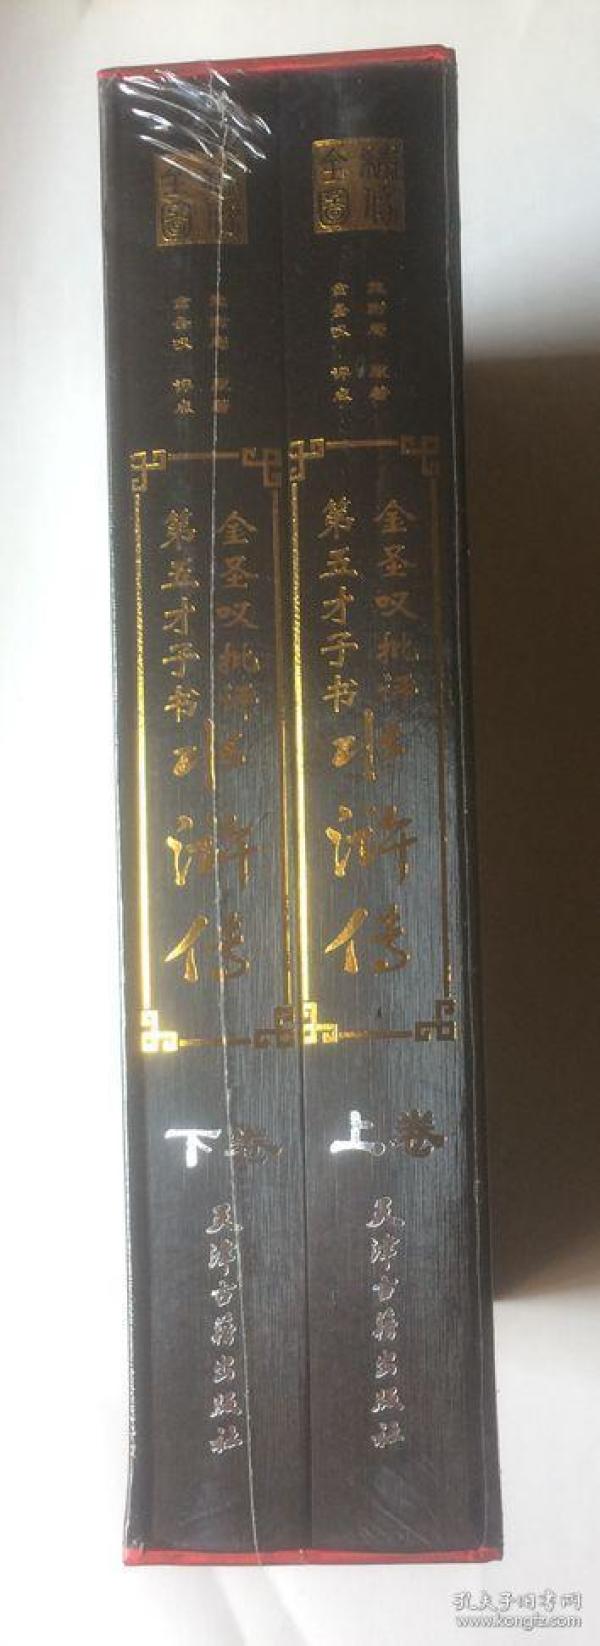 绣像
全图
施耐庵 原著
金圣叹 评点
金圣叹批评本
第五才子书
水浒传
上卷
天津古籍出版社
绣像
全图
施耐庵 原著
金圣叹 评点
金圣叹批评本
第五才子书
水浒传
下卷
天津古籍出版社
孔夫子旧书网
www.kongfz.com